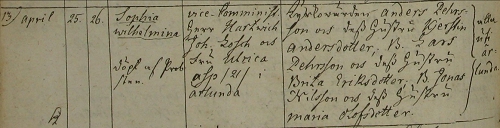 13) april 25. 26. Sophia
wilhelmina
döpt af Prob
sten.
vice-Comminist.
Herr Hartwich
Joh. och
fru Ulrica
asp /21/ i
arlunda
anders Pehrs-
son och dess Hustru Kerstin
andersdotter. B. Lars
Pehrsson och dess Hustru
Brita Eriksdotter. B. Jonas
Nilsson och dess Hustru
maria Olofsdotter.
alle
i
är-
lunda